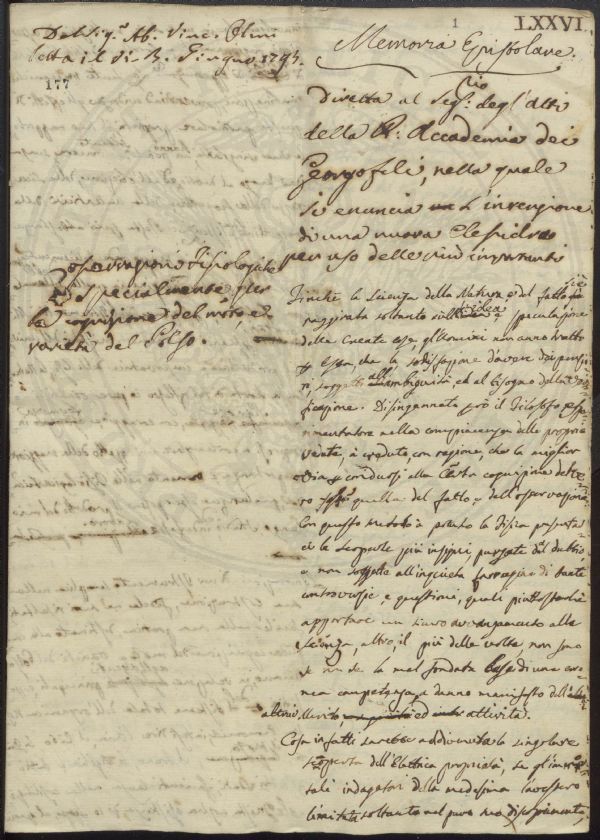 1
LXXVI
Del Sig.r Ab. Vinc. Chini
letta il dì Giugno 1794.
177
Memoria Epistolare
Diretta al Seg.rio degl'Atti
della R. Accademia dei
Georgofili, nella quale
si enuncia l'invenzione
di una nuova Clesidra
per uso delle più importanti
osservazioni Fisiologiche
e specialmente per
la cognizione del moto e
varietà del Polso.
Finchè la Scienza della Natura e del fatto si è
raggirata soltanto sull'idea e speculazione
delle Create cose, gl'Uomini non anno tratto
da Essa, che la sodisfazione d'avere dei pensieri
soggetti all'ambiguità, ed al bisogno della
ficazione. Disingannato però il Filosofo spe
rimentatore nella compiacenza delle proprie
vedute, à creduto, con ragione, che la miglior
via p condursi alla Certa cognizione del Ve
ro quella del fatto, e dell'osservazione
Con questo metodo à potuto la Fisica presentar
ci le scoperte più insigni purgate dal dubbio
e non soggette all'inquieta farragine di tante
controversie, e questioni, quali piuttostochè
apportare un sicuro avanzamento alla
Scienza, altro, il più delle volte, non sono
se non la mal fondata base di una ero
nea competenza a danno manifesto dell'
altrui Merito ed attività.
Cosa infatti sarebbe addivenuta la singolare
scoperta dell'Elettrica proprietà, se gl'immor
tali indagatori della medesima l'avessero
limitata soltanto nel puro suo discoprimento